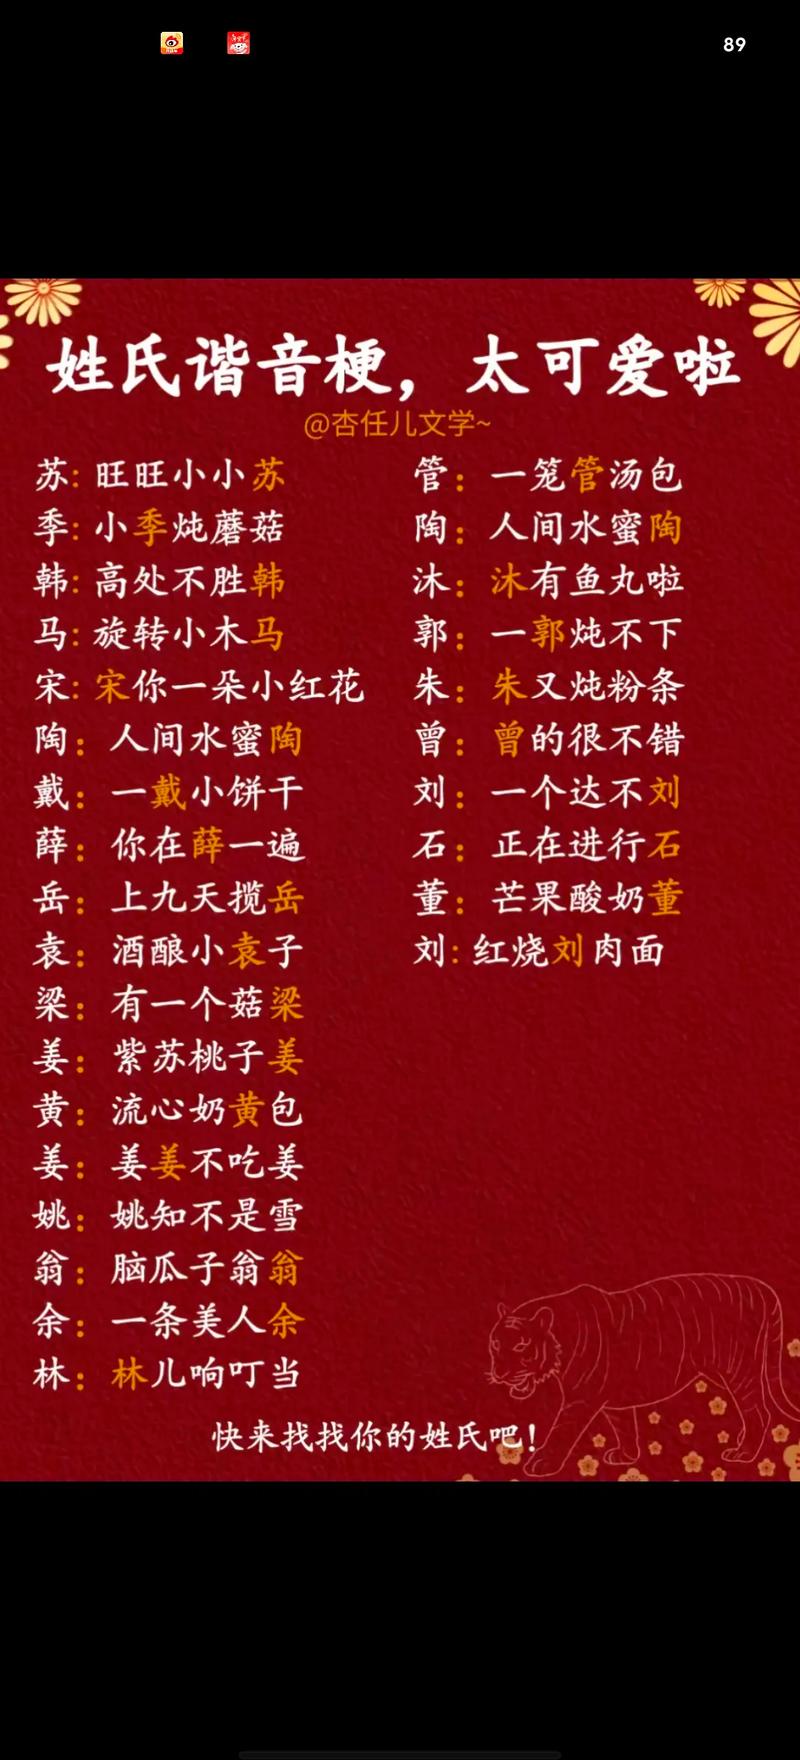 89
姓氏谐音梗，太可爱啦
@杏任儿文学~
苏：旺旺小小苏
季：小季炖蘑菇
韩：高处不胜韩
马：旋转小木马
宋：宋你一朵小红花
陶：人间水蜜陶
戴：一戴小饼干
薛：你在薛一遍
岳：上九天揽岳
袁：酒酿小袁子
梁：有一个菇梁
姜：紫苏桃子姜
黄：流心奶黄包
姜：姜姜不吃姜
姚：姚知不是雪
翁：脑瓜子翁翁
余：一条美人余
林：林儿响叮当
管：一笼管汤包
陶：人间水蜜陶
沐：沐有鱼丸啦
郭：一郭炖不下
朱：朱又炖粉条
曾：曾的很不错
刘：一个达不刘
石：正在进行石
董：芒果酸奶董
刘：红烧刘肉面
快来找找你的姓氏吧！